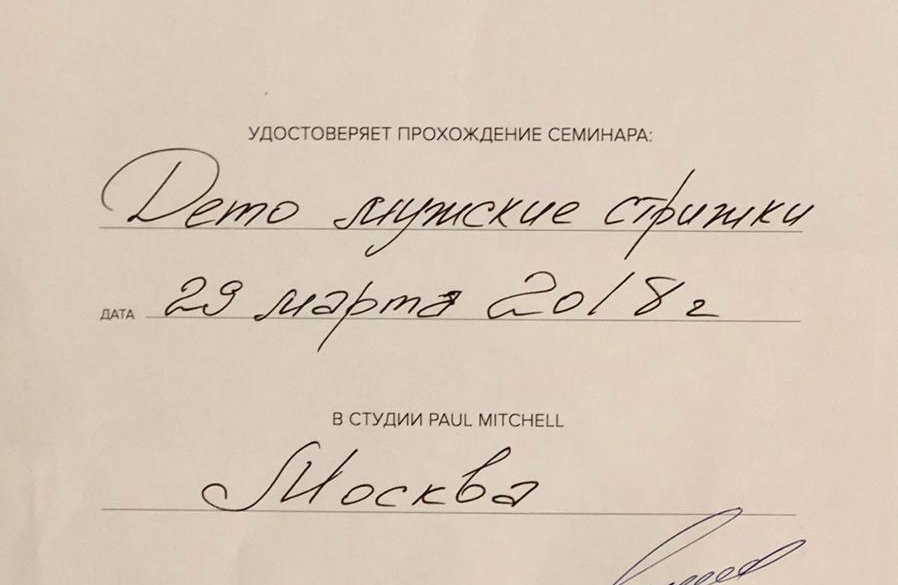 УДОСТОВЕРЯЕТ ПРОХОЖДЕНИЕ СЕМИНАРА:
Дето мужские стрижки
ДАТА 29 марта 2018 г
В СТУДИИ PAUL MITCHELL
Москва